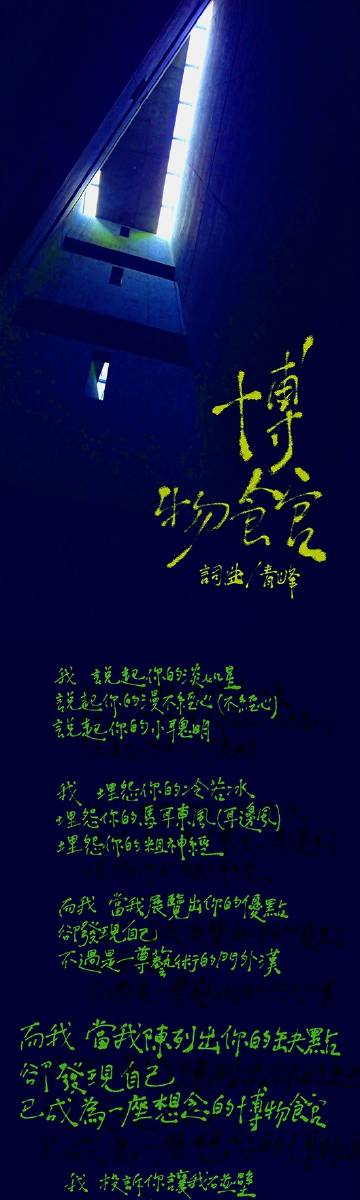 博
物館
詞曲/青峰
我 說起你的淡如星
說起你的漫不經心(不經心)
說起你的小聰明
我 埋怨你的冷若冰
埋怨你的馬耳東風(耳邊風)
埋怨你的粗神經
而我 當我展覽出你的優點
卻發現自己
不過是一尊藝術的門外漢
而我 當我陳列出你的缺點
卻發現自己
已成為一座想念的博物館
我 投訴你讓我